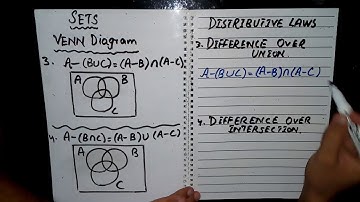 SETS
VENN Diagram
3. A-(B∪C)=(A-B)∩(A-C):
A B
C
4. A-(B∩C)=(A-B)∪(A-C)
A B
C
DISTRIBUTIVE LAWS
3. DIFFERENCE OVER
UNION.
A-(B∪C)=(A-B)∩(A-C)
4. DIFFERENCE OVER
INTERSECTION.